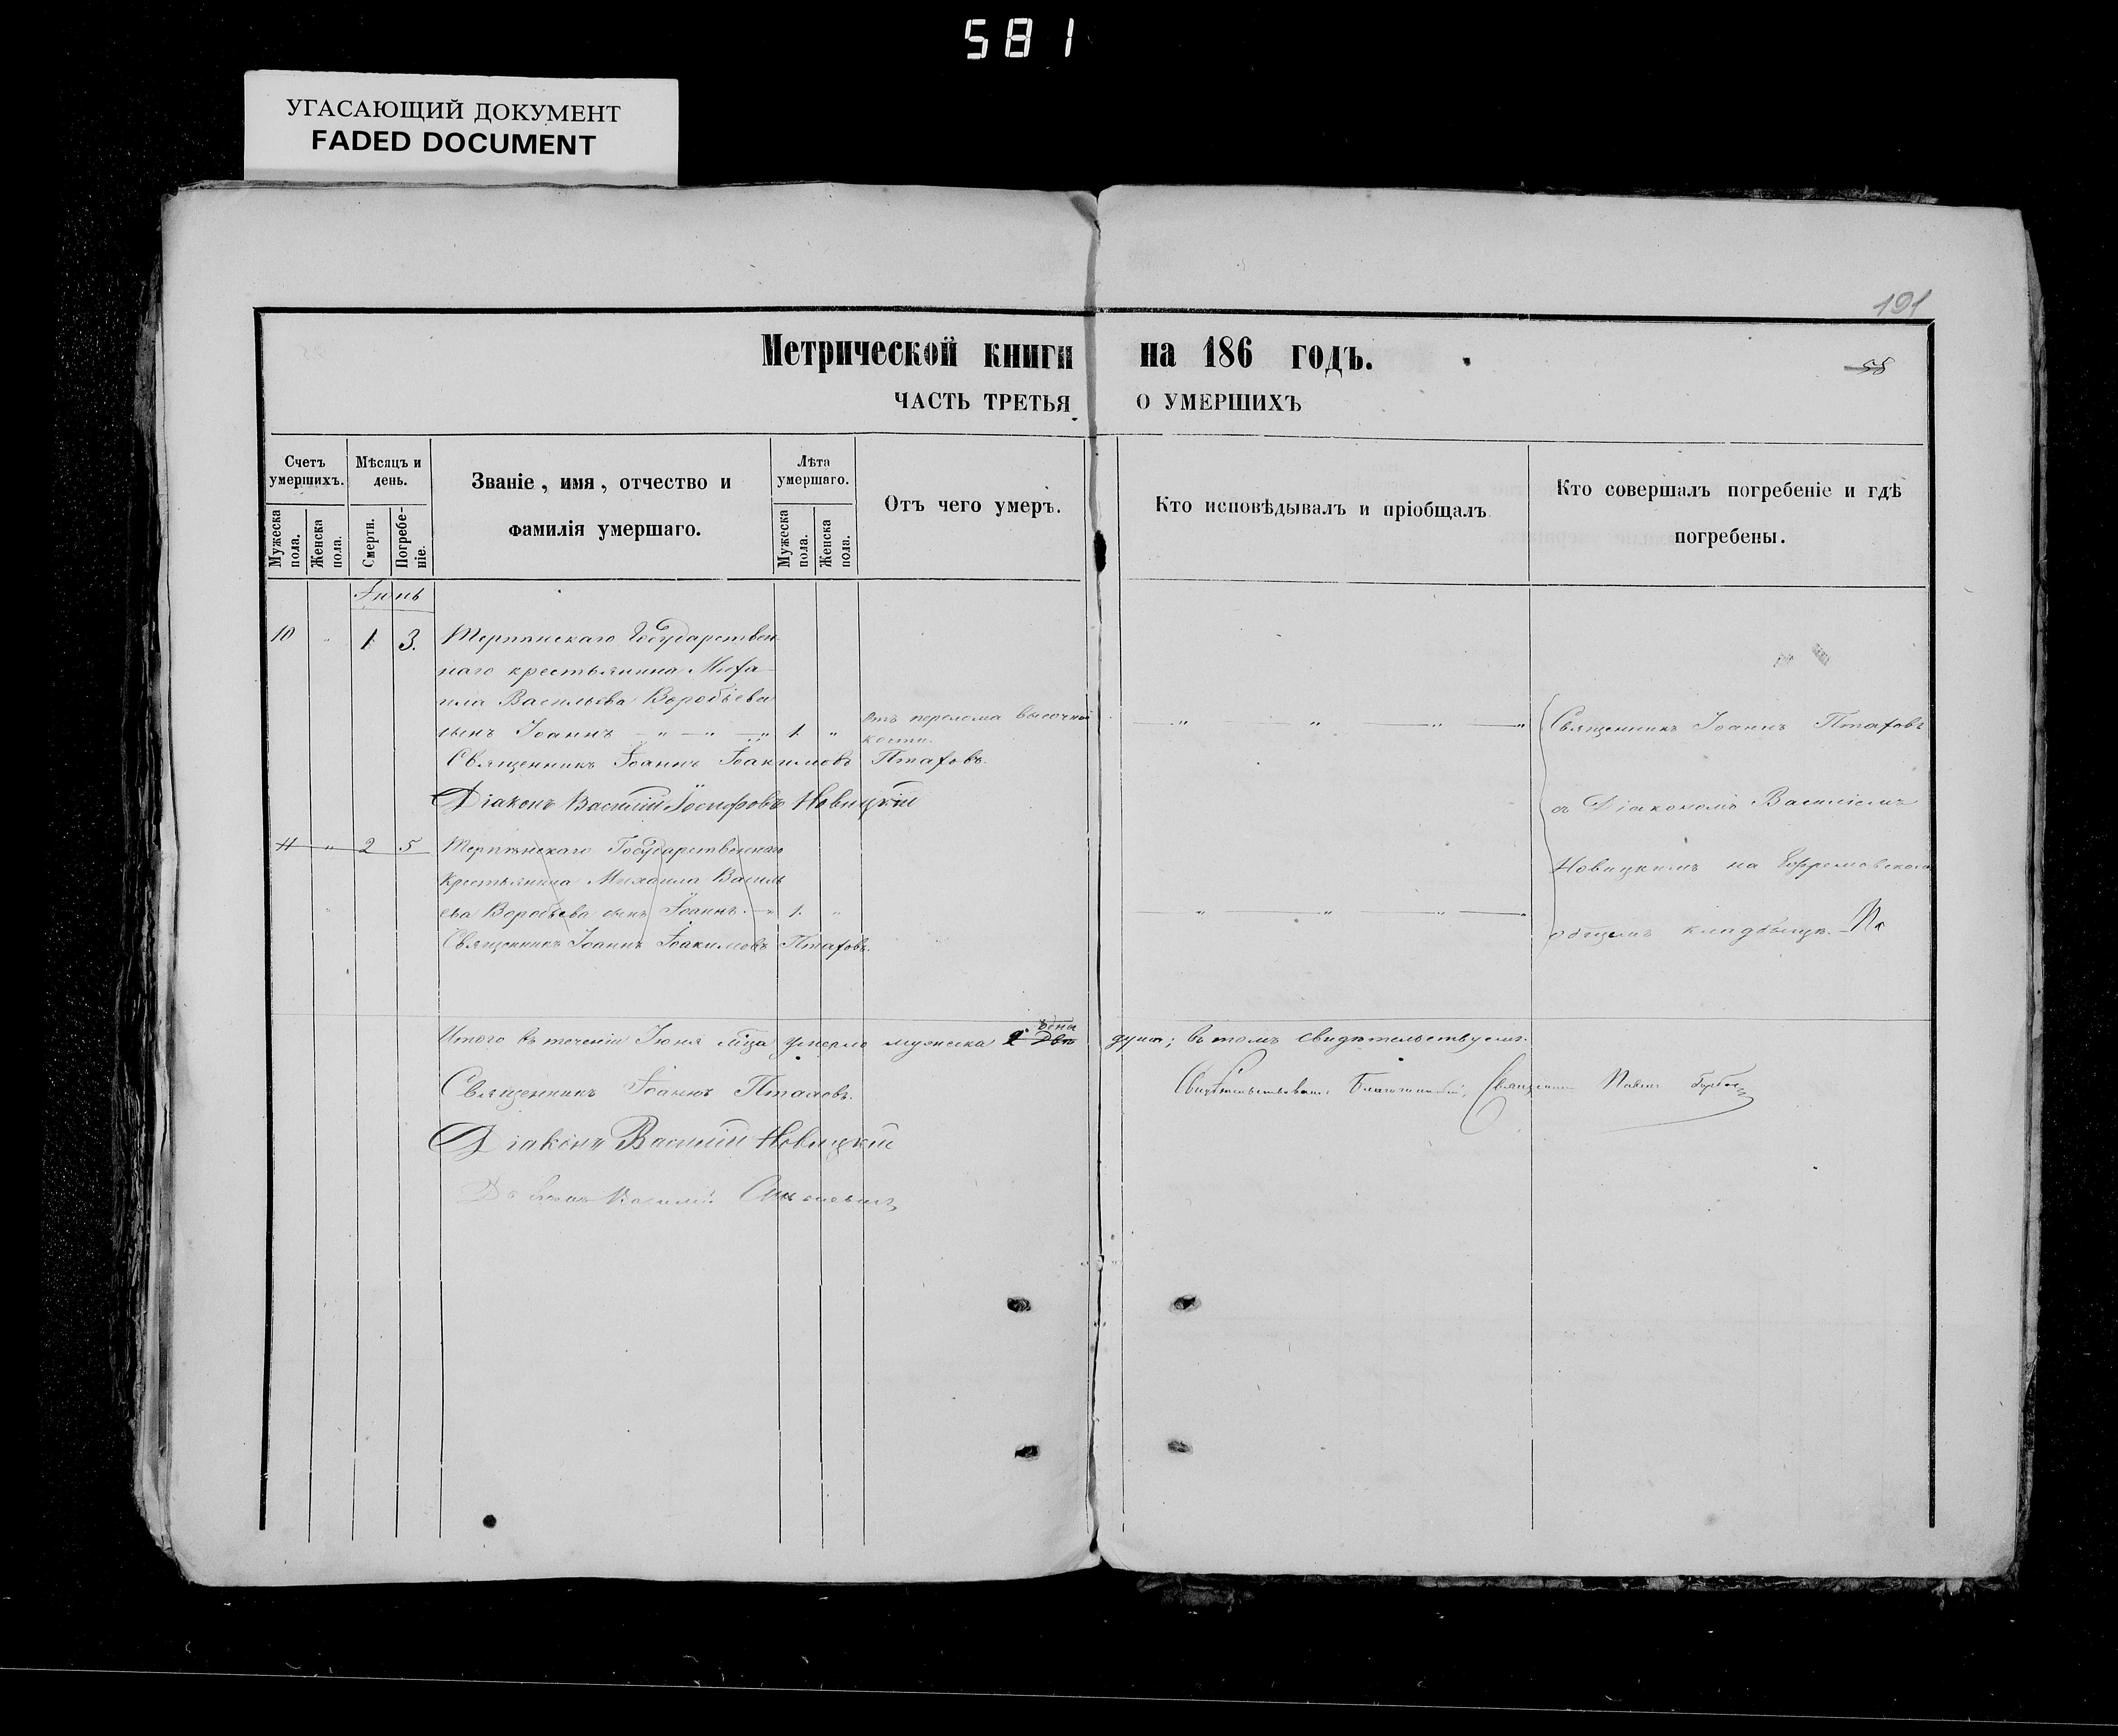 581
УГАСАЮЩИЙ ДОКУМЕНТ
FADED DOCUMENT
191
Метрической книги на 186 годъ.
58
ЧАСТЬ ТРЕТЬЯ О УМЕРШИХЪ
Счетъ умершихъ.
Мужеска пола.
Женска пола.
Мѣсяцъ и день.
Смерти.
Погребе-ніе.
Званіе, имя, отчество и
фамилія умершаго.
Лѣта умершаго.
Мужеска пола.
Женска пола.
Отъ чего умеръ.
Кто исповѣдывалъ и пріобщалъ
Кто совершалъ погребеніе и гдѣ
погребены.
Іюнь
10 " 1 3. Государствен-
наго крестьянина Миха-
ила Васильева Воробьева
сынъ Іоаннъ — " — " — " 1. "
Отъ перелома височной
кости.
Священникъ Іоаннъ Іоакимовъ Птаховъ.
Діаконъ Василій Іосифовъ Новицкій
11 " 2 5 Государственнаго
Крестьянина Михаила Василь
ева Воробьева сынъ Іоаннъ. — " 1. "
Священникъ Іоаннъ Іоакимовъ Птаховъ.
Священникъ Іоаннъ Птаховъ
съ Діакономъ Василіемъ
Новицкимъ на Ефремовскомъ
общемъ кладбищѣ.
Итого въ теченіи Іюня мца умерло мужеска 2 двѣ душа; въ томъ свидѣтельствуемъ.
Священникъ Іоаннъ Птаховъ.
Діаконъ Василій Новицкій
Василій
Свидѣтельствовалъ Благочинный, Священникъ Павелъ